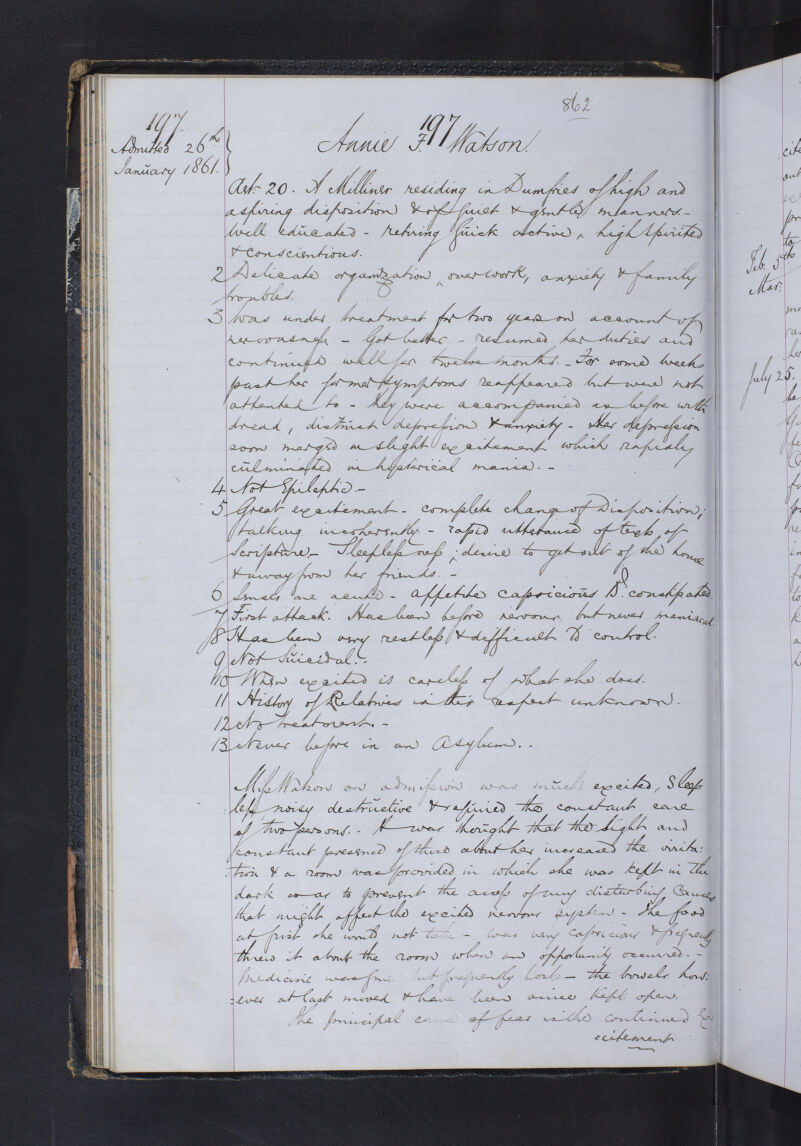 862
197.
Admitted 26th
January 1861.
197
Annie F. Watson.
Aet. 20. A Milliner residing in Dumfries of high and
aspiring disposition & of quiet & gentle manners -
well educated - retiring quick active, high spirited
& conscientious.
2 Delicate organization, overwork, anxiety & family
troubles.
3 Was under treatment for two years on account of
nervousness - Got better - resumed her duties and
continued well for twelve months. - For some weeks
past her former symptoms reappeared but were not
attended to - they were accompanied as before with
dread, distrust depression & anxiety - Her depression
soon merged in slight excitement which rapidly
culminated in hysterical mania. -
4 Not Epileptic -
5 Great excitement - complete change of Disposition;
talking incoherently - rapid utterance of texts of
Scripture - Sleeplessness; desire to get out of the house
& away from her friends. -
6 Senses are acute - appetite capricious Bl. constipated
7 First attack. Has been before nervous but never maniacal
8 Has been very restless & difficult to control.
9 Not Suicidal. -
10 When excited is careless of what she does.
11 History of Relatives in this respect unknown.
12 No treatment. -
13 Never before in an Asylum. -
Miss Watson on admission was much excited, Sleep
less noisy destructive & required the constant care
of two persons. - It was thought that the sight and
constant presence of those about her increased the irrita:
:tion & a room was provided in which she was kept in the
dark so as to prevent the access of any disturbing Causes
that might affect the excited nervous system - The food
at first she would not take - was very capricious & frequently
threw it about the room when an opportunity occurred. -
Medicine was given but frequently lost - the bowels how:
:ever at last moved & have been since kept open.
The principal cause of fear is the continued Ex:
:citement
Feb. 5th
Mar.
July 25.